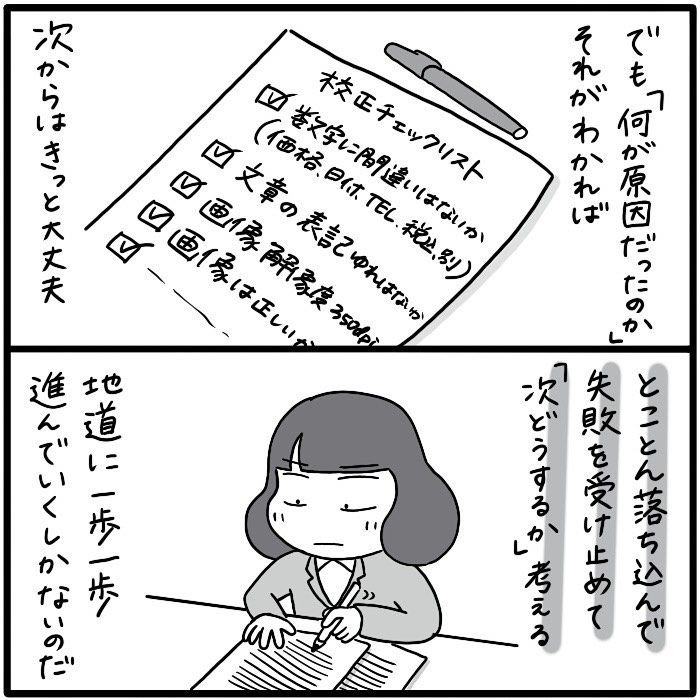 でも「何が原因だったのか」
それがわかれば
校正チェックリスト
数字に間違いはないか
(価格、日付、TEL、税込、別)
文章の表記ゆれはないか
画像解像度350dpi
画像は正しいか
次からはきっと大丈夫
とことん落ち込んで
失敗を受け止めて
「次どうするか」考える
地道に一歩一歩
進んでいくしかないのだ